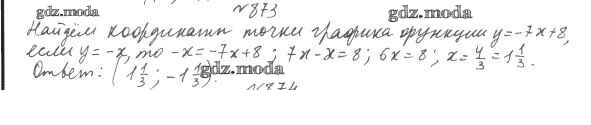 №873
gdz.moda gdz.moda
Найдём координаты точки графика функции y=-7x+8,
если y=-x, то -x=-7x+8; 7x-x=8; 6x=8; x=4/3=1 1/3.
Ответ: (1 1/3; -1 1/3). gdz.moda
№874